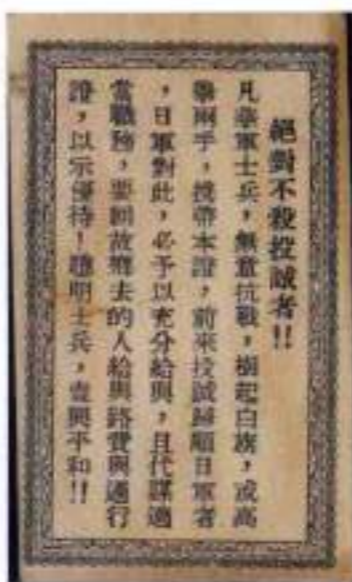 絕對不殺投誠者!!
凡華軍士兵,無意抗戰,樹起白旗,或高
舉兩手,携帶本證,前來投誠歸順日軍者
,日軍對此,必予以充分給與,且代謀適
當職務,要回故鄉去的人給與路費與通行
證,以示優待!聰明士兵,壹興乎和!!